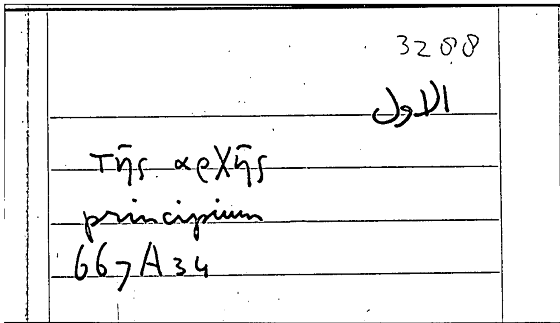 3288
الاول
τῆς ἀρχῆς
principium
667A34